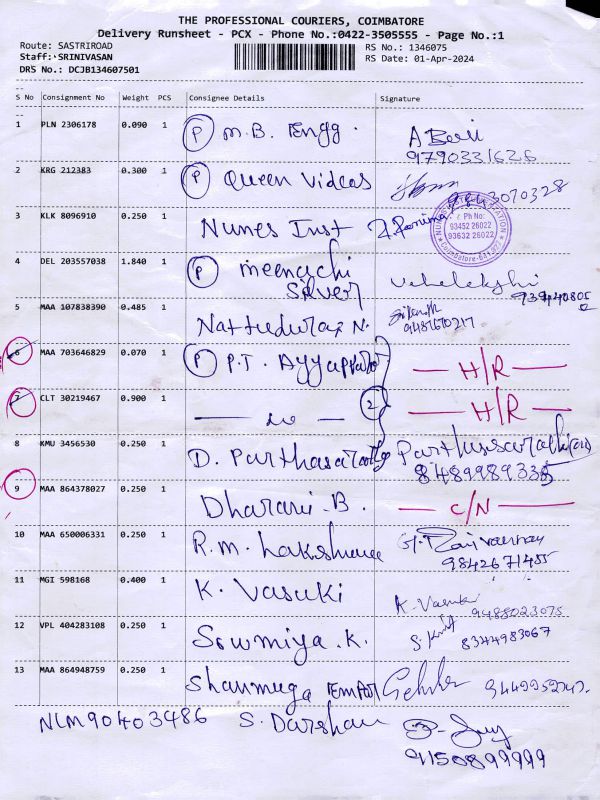 THE PROFESSIONAL COURIERS, COIMBATORE
Delivery Runsheet - PCX - Phone No.:0422-3505555 - Page No.:1
Route: SASTRIROAD
RS No.: 1346075
Staff.:SRINIVASAN
RS Date: 01-Apr-2024
DRS No.: DCJB134607501
S No Consignment No Weight PCS Consignee Details Signature
1 PLN 2306178 0.090 1 P M.B. Engg.
9790331626
2 KRG 212383 0.300 1 P Queen Videos 9843070328
3 KLK 8096910 0.250 1 Nunes Inst
Ph No:
93452 26022
93632 26022
Coimbatore-641
4 DEL 203557038 1.840 1 P meenachi
Silver
5 MAA 107838390 0.485 1 Nattudurai N.
9487670217
6 MAA 703646829 0.070 1 P P.T. Ayyappan — H/R —
7 CLT 30219467 0.900 1 2 — H/R —
8 KMU 3456530 0.250 1 D. Parthasarathy
8489989335
9 MAA 864378027 0.250 1 Dharani.B. — C/N —
10 MAA 650006331 0.250 1 R.M. Lakshmanee
9842671455
11 MGI 598168 0.400 1 K. Vasuki
K. Vasuki 9488023075
12 VPL 404283108 0.250 1 Sowmiya.K. 8344983067
13 MAA 864948759 0.250 1 Shanmuga
NLM90403486 S. Darshan
9150899999